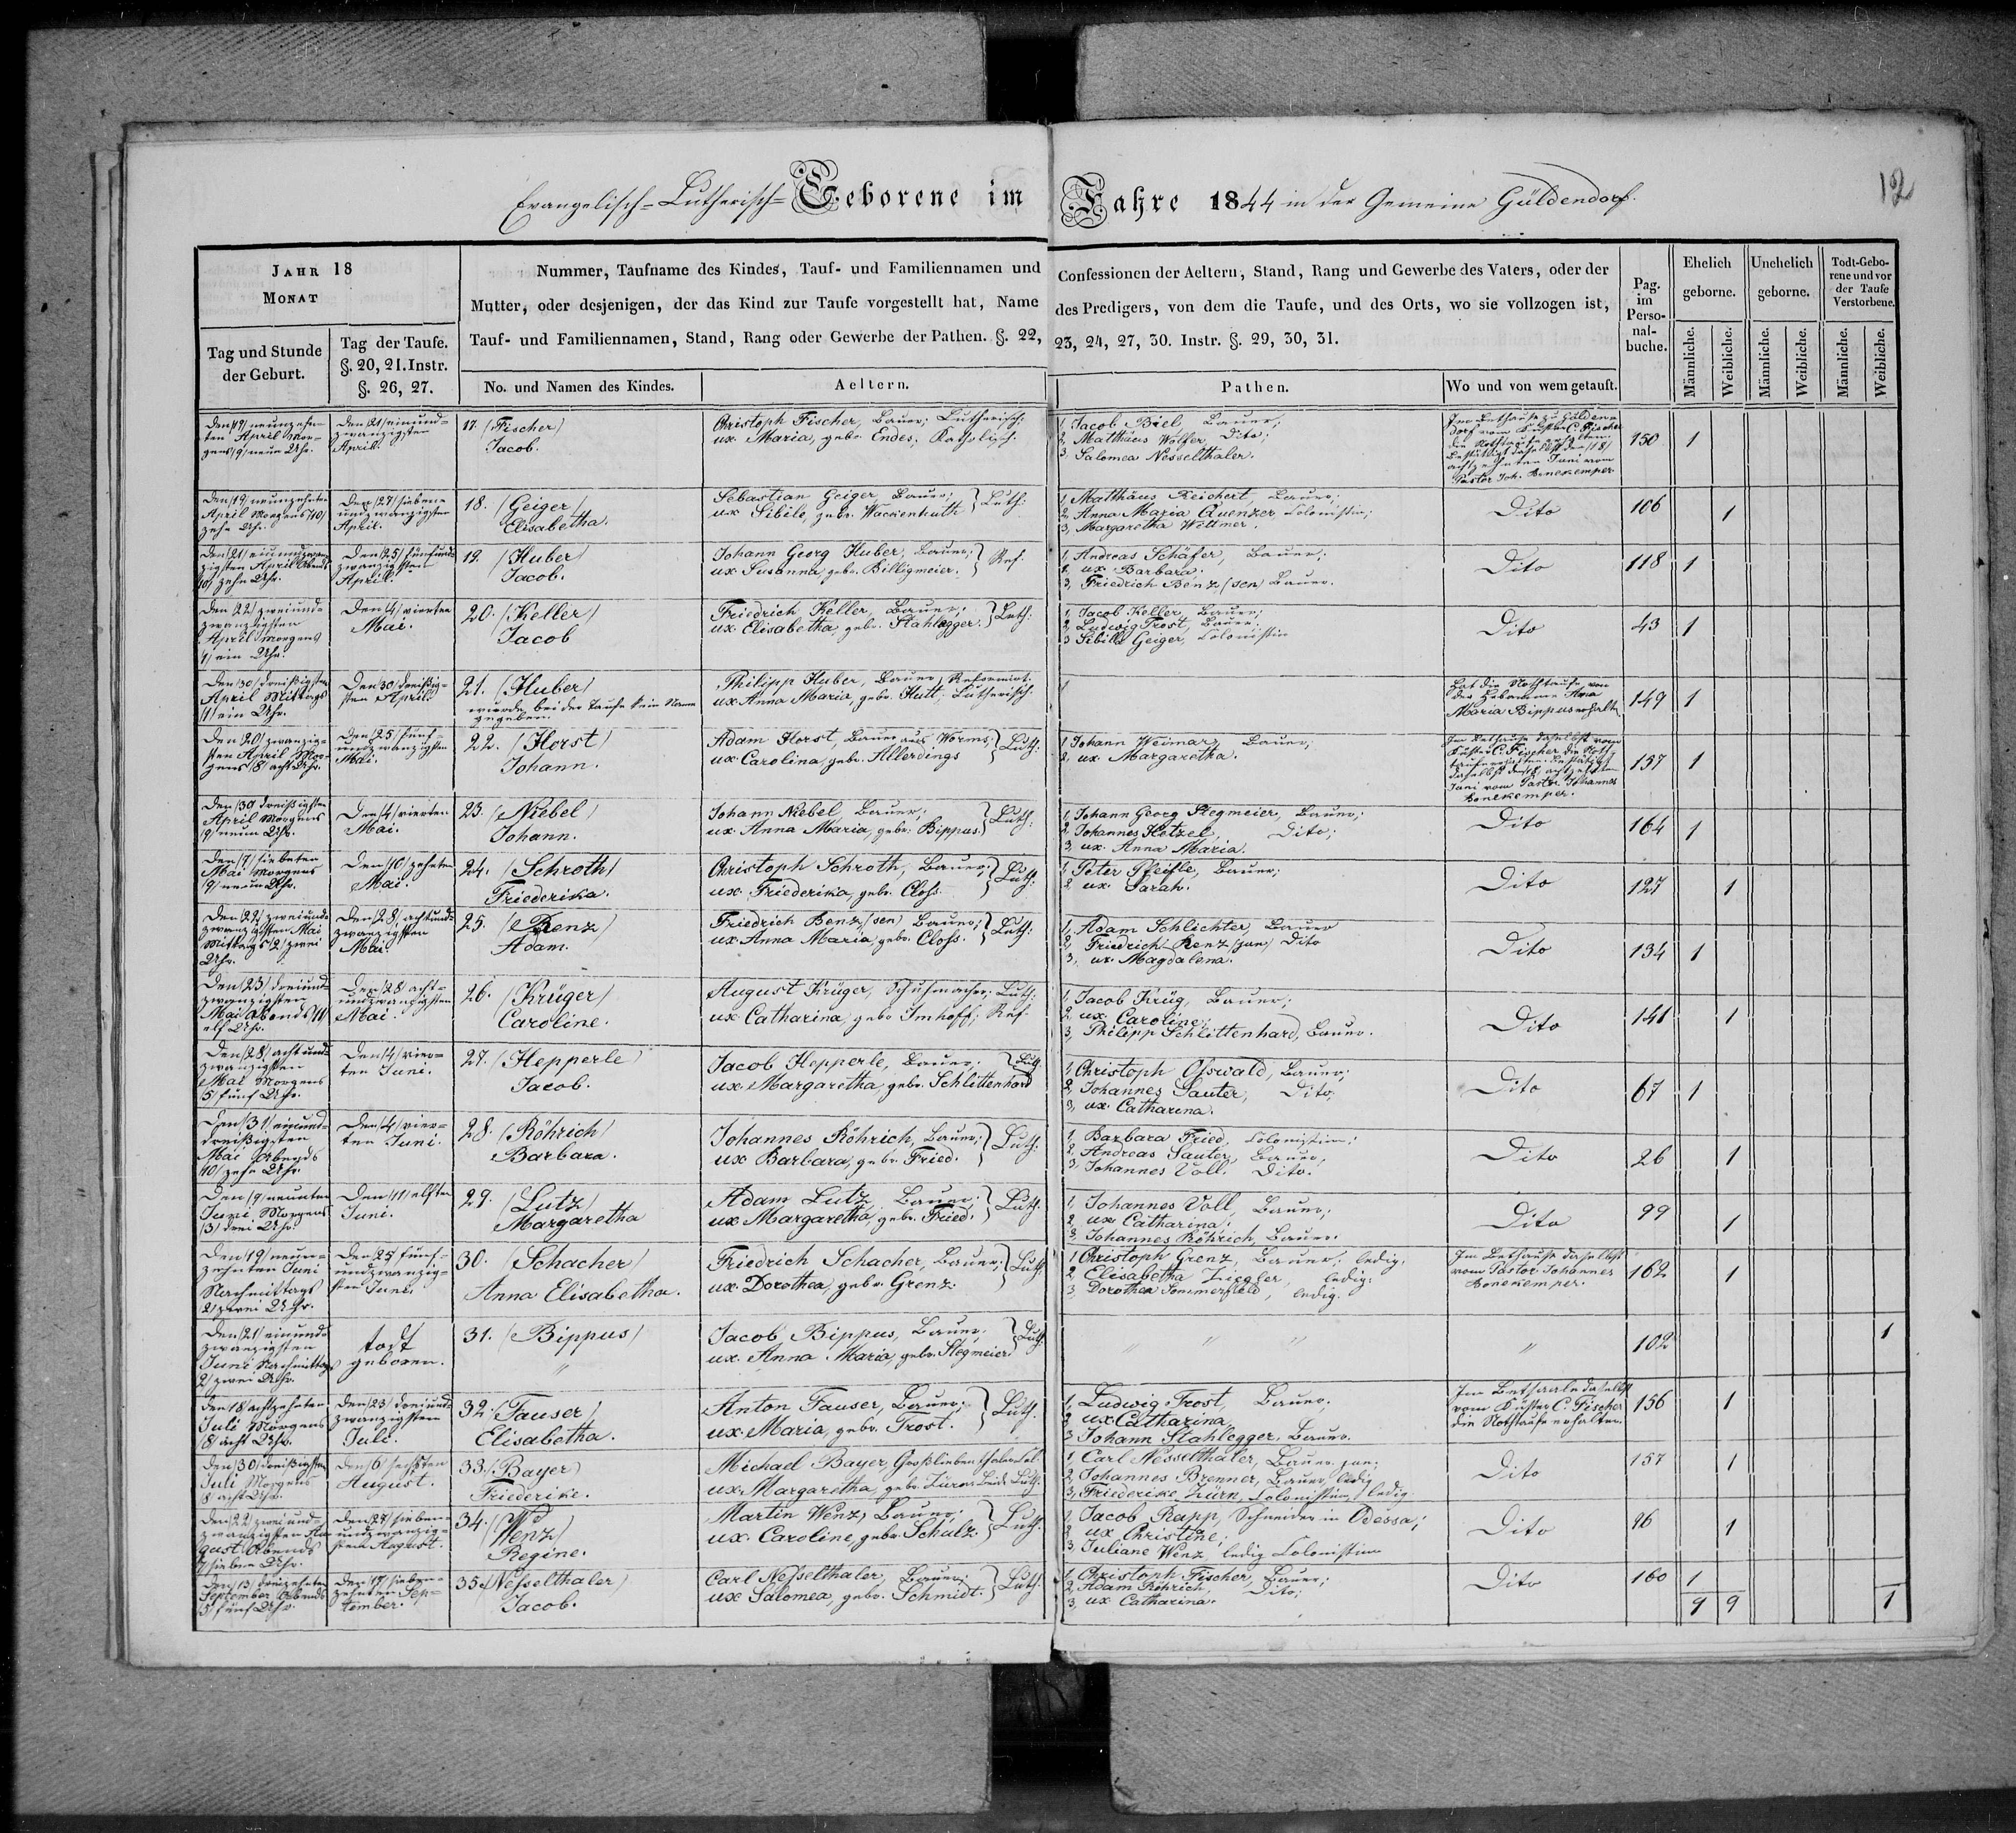 Evangelisch-Lutherisch- Geborene im Jahre 1844 in der Gemeine Güldendorf.
12
JAHR 18
MONAT
Tag und Stunde der Geburt.
Tag der Taufe. §. 20, 21. Instr. §. 26, 27.
Nummer, Taufname des Kindes, Tauf- und Familiennamen und Confessionen der Aeltern, Stand, Rang und Gewerbe des Vaters, oder der
Mutter, oder desjenigen, der das Kind zur Taufe vorgestellt hat, Name des Predigers, von dem die Taufe, und des Orts, wo sie vollzogen ist,
Tauf- und Familiennamen, Stand, Rang oder Gewerbe der Pathen. §. 22, 23, 24, 27, 30. Instr. §. 29, 30, 31.
No. und Namen des Kindes.
Aeltern.
Pathen.
Wo und von wem getauft.
Pag. im Perso-nal-buche.
Ehelich geborne.
Unehelich geborne.
Todt-Gebo-rene und vor der Taufe Verstorbene.
Männliche.
Weibliche.
Männliche.
Weibliche.
Männliche.
Weibliche.
Den /19/ neunzehn-
ten April Mor-
gens /9/ neun Uhr.
Den /21/ einund-
zwanzigsten
April.
17. /Fischer/
Jacob.
Christoph Fischer, Bauer; Lutherisch;
ux. Maria, geb. Endes. Katholisch.
1, Jacob Biel, Bauer;
2, Matthäus Wolfer, Dito;
3, Salomea Nesselthaler.
Im Bethause zu Gülden-
dorf vom Küster C. Fischer
die Nothtaufe erhalten.
Bestätigt daselbst den /18/
achtzehnten Juni vom
Pastor Joh. Bonekemper.
150
1
Den /19/ neunzehnten
April Morgens /10/
zehn Uhr.
Den /27/ sieben-
undzwanzigsten
April.
18. /Geiger/
Elisabetha.
Sebastian Geiger, Bauer; } Luth:
ux. Sibile, geb. Wackenhuth
1, Matthäus Reichert, Bauer;
2, Anna Maria Quenzer Colonistin;
3, Margaretha Wettmer.
Dito
106
1
Den /21/ einundzwan-
zigsten April Abends
/10/ zehn Uhr.
Den /25/ fünfund-
zwanzigsten
April.
19. /Huber/
Jacob.
Johann Georg Huber, Bauer; } Ref.
ux. Susanna, geb. Billigmeier.
1, Andreas Schäfer, Bauer;
2, ux. Barbara.
3, Friedrich Benz /sen/ Bauer.
Dito
118
1
Den /22/ zweiund-
zwanzigsten
April Morgens
/1/ ein Uhr.
Den /4/ vierten
Mai.
20. /Keller/
Jacob
Friedrich Keller, Bauer; } Luth:
ux. Elisabetha, geb. Stahlegger.
1, Jacob Keller, Bauer;
2, Ludwig Trost, Bauer.
3, Sibille Geiger, Colonistin
Dito
43
1
Den /30/ dreißigsten
April Mittags
/1/ ein Uhr.
Den /30/ dreißig-
sten April
21. /Huber/
wurde bei der Taufe kein Name
gegeben.
Philipp Huber, Bauer, Reformirt.
ux. Anna Maria, geb. Hutt. Lutherisch.
Hat die Nothtaufe von
der Hebamme
Maria Bippus erhalten
149
1
Den /20/ zwanzig-
sten April Mor-
gens /8/ acht Uhr.
Den /25/ fünf-
undzwanzigsten
Mai.
22. /Horst/
Johann.
Adam Horst, Bauer aus Worms; } Luth:
ux. Carolina, geb. Allerdings
1, Johann Weimar, Bauer;
2, ux. Margaretha.
Im Bethause daselbst vom
Küster C. Fischer die Noth-
taufe erhalten. Bestätigt
daselbst den /18/ achtzehnten
Juni vom Pastor Johannes
Bonekemper.
137
1
Den /30/ dreißigsten
April Morgens
/9/ neun Uhr.
Den /4/ vierten
Mai.
23. /Niebel/
Johann.
Johann Niebel, Bauer; } Luth:
ux. Anna Maria, geb. Bippus.
1, Johann Georg Stegmeier, Bauer;
2, Johannes Hetzel, Dito;
3, ux. Anna Maria.
Dito
164
1
Den /7/ siebeten
Mai Morgens
/9/ neun Uhr.
Den /10/ zehnten
Mai.
24. /Schroth/
Friederika.
Christoph Schroth, Bauer; } Luth:
ux. Friederika, geb. Closs.
1, Peter Pfeifle, Bauer;
2, ux. Sarah.
Dito
127
1
Den /22/ zweiund-
zwanzigsten Mai
Mittags /2/ zwei
Uhr.
Den /28/ achtund-
zwanzigsten
Mai.
25. /Benz/
Adam.
Friedrich Benz /sen/ Bauer; } Luth:
ux. Anna Maria, geb. Closs.
1, Adam Schlichter, Bauer
2, Friedrich Renz /jun/ Dito
3, ux. Magdalena.
Dito
134
1
Den /23/ dreiund-
zwanzigsten
Mai Abends /11/
elf Uhr.
Den /28/ acht-
undzwanzigsten
Mai.
26. /Krüger/
Caroline.
August Krüger, Schuhmacher; Luth:
ux. Catharina, geb. Imhoff; Ref.
1, Jacob Krüg, Bauer;
2, ux. Caroline;
3, Philipp Schlittenhard, Bauer.
Dito
141
1
Den /28/ achtund-
zwanzigsten
Mai Morgens
/5/ fünf Uhr.
Den /4/ vier-
ten Juni.
27. /Hepperle/
Jacob.
Jacob Hepperle, Bauer. } Luth.
ux. Margaretha, geb. Schlittenhard
1, Christoph Osswald, Bauer;
2, Johannes Sauter, Dito;
3, ux. Catharina.
Dito
67
1
Den /31/ einund-
dreißigsten
Mai Abends
/10/ zehn Uhr.
Den /4/ vier-
ten Juni.
28. /Röhrich/
Barbara.
Johannes Röhrich, Bauer; } Luth:
ux. Barbara, geb. Fried.
1, Barbara Fried, Colonistin;
2, Andreas Sauter, Bauer;
3, Johannes Voll. Dito.
Dito
26
1
Den /9/ neunten
Juni Morgens
/3/ drei Uhr.
Den /11/ elften
Juni.
29. /Lutz/
Margaretha
Adam Lutz, Bauer; } Luth.
ux. Margaretha, geb. Fried.
1, Johannes Voll, Bauer;
2, ux. Catharina;
3, Johannes Röhrich, Bauer.
Dito
99
1
Den /19/ neun-
zehnten Juni
Nachmittags
/2/ zwei Uhr.
Den /25/ fünf-
undzwanzig-
sten Juni.
30. /Schacher/
Anna Elisabetha.
Friedrich Schacher, Bauer; } Luth.
ux. Dorothea, geb. Grenz.
1, Christoph Grenz, Bauer, ledig.
2, Elisabetha Ziegler, ledig;
3, Dorothea Sommerfeld, ledig.
Im Bethause daselbst
vom Pastor Johannes
Bonekemper.
162
1
Den /21/ einund-
zwanzigsten
Juni Nachmittags
/2/ zwei Uhr.
todt
geboren.
31. /Bippus/
"
Jacob Bippus, Bauer. } Luth.
ux. Anna Maria, geb. Stegmeier
" " "
"
102
1
Den /18/ achtzehnten
Juli Morgens
/8/ acht Uhr.
Den /23/ dreiund-
zwanzigsten
Juli.
32. /Fauser/
Elisabetha.
Anton Fauser, Bauer; } Luth.
ux. Maria, geb. Trost.
1, Ludwig Trost, Bauer,
2, ux. Catharina,
3, Johann Stahlegger, Bauer.
Im Bethsaale daselbst
vom Küster C. Fischer
die Nothtaufe erhalten.
156
1
Den /30/ dreißigsten
Juli Morgens
/8/ acht Uhr.
Den /6/ sechsten
August.
33. /Bayer/
Friederike.
Michael Bayer, Großliebenthaler Col.
ux. Margaretha, geb. Zürn. Beide Luth.
1, Carl Nesselthaler, Bauer jun;
2, Johannes Brenner, Bauer, ledig
3, Friederike Zürn, Colonistin, ledig.
Dito
157
1
Den /22/ zweiund-
zwanzigsten Au-
gust Abends
/7/ sieben Uhr.
Den /27/ sieben-
undzwanzig-
sten August.
34. /Wenz/
Regine.
Martin Wenz, Bauer; } Luth.
ux. Caroline, geb. Schulz.
1, Jacob Rapp, Schneider in Odessa;
2, ux. Christine;
3, Juliane Wenz, ledig Colonistin
Dito
96
1
Den /13/ dreizehnten
September Abends
/5/ fünf Uhr.
Den /17/ sieben-
zehnten Sep-
tember.
35. /Nesselthaler/
Jacob.
Carl Nesselthaler, Bauer; } Luth.
ux. Salomea, geb. Schmidt.
1, Christoph Fischer, Bauer;
2, Adam Röhrich, Dito;
3, ux. Catharina.
Dito
160
1
9 9 1